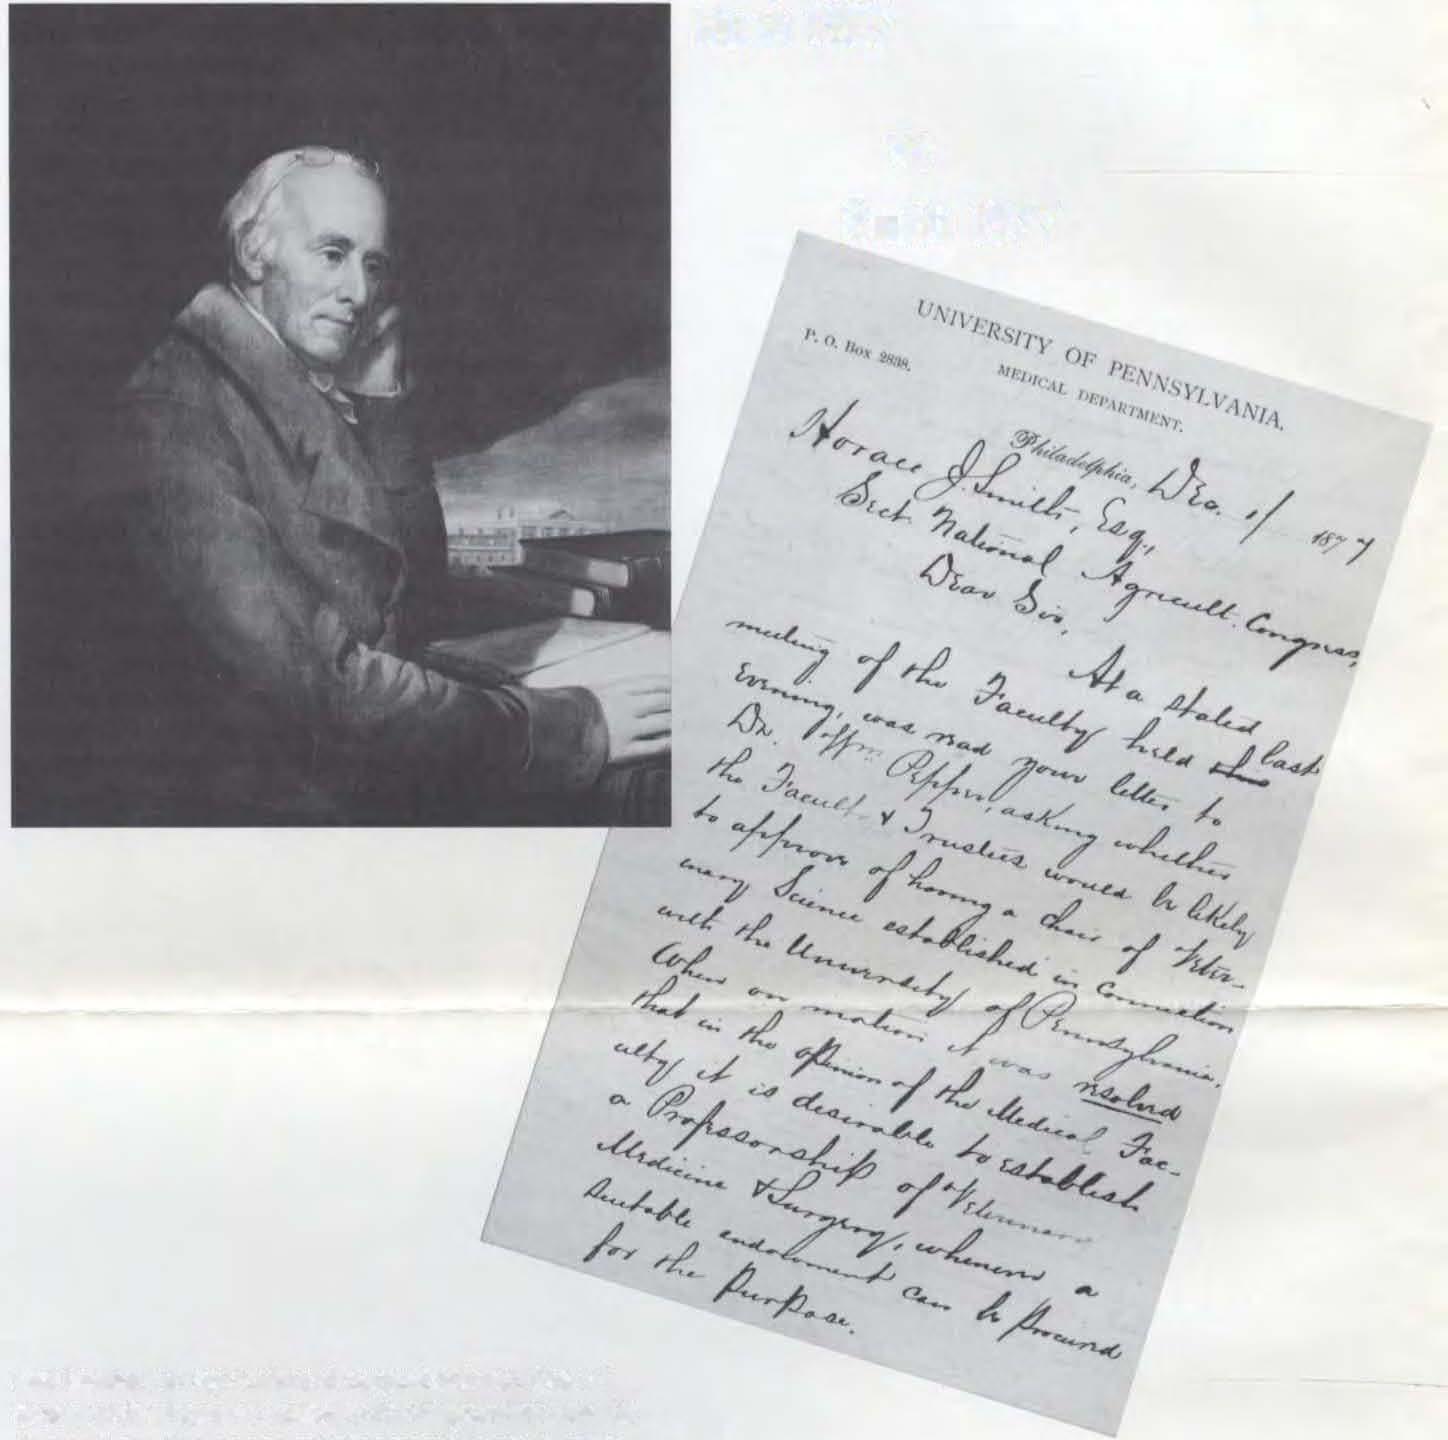 UNIVERSITY OF PENNSYLVANIA.
MEDICAL DEPARTMENT.
P. O. Box 2838.
Philadelphia, Dec. 1/ 1877
Horace J. Smith, Esq.,
Sect. National Agricult. Congress,
Dear Sir,
At a stated
meeting of the Faculty held last
evening, was read your letter to
Dr. Wm. Pepper, asking whether
the Faculty & Trustees would be likely
to approve of having a chair of Veter-
inary Science established in connection
with the University of Pennsylvania,
When on motion it was resolved
that in the opinion of the Medical Fac-
ulty it is desirable to establish
a Professorship of Veterinary
Medicine & Surgery, whenever a
suitable endowment can be procured
for the purpose.